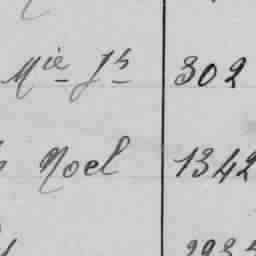 Mie Jh 302
Noel 1342